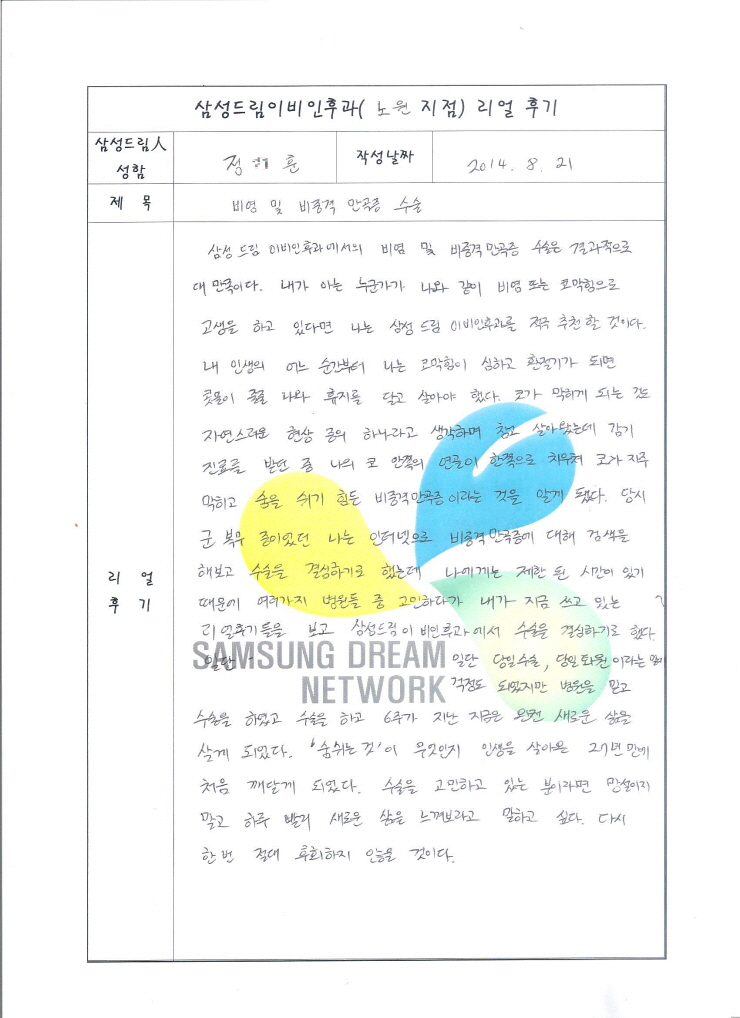 삼성드림이비인후과( 노원 지점) 리얼 후기
삼성드림人
성함
정 훈
작성날짜
2014. 8. 21
제 목
비염 및 비중격 만곡증 수술
삼성 드림 이비인후과에서의 비염 및 비중격만곡증 수술은 결과적으로
대 만족이다. 내가 아는 누군가가 나와 같이 비염 또는 코막힘으로
고생을 하고 있다면 나는 삼성 드림 이비인후과를 적극 추천 할 것이다.
내 인생의 어느 순간부터 나는 코막힘이 심하고 환절기가 되면
콧물이 줄줄 나와 휴지를 달고 살아야 했다. 코가 막히게 되는 것도
자연스러운 현상 중의 하나라고 생각하며 참고 살아왔는데 감기
진료를 받던 중 나의 코 안쪽의 연골이 한쪽으로 치우쳐 코가 자주
막히고 숨을 쉬기 힘든 비중격만곡증이라는 것을 알게 됐다. 당시
군 복무 중이었던 나는 인터넷으로 비중격만곡증에 대해 검색을
해보고 수술을 결심하기로 했는데 나에게는 제한 된 시간이 있기
때문에 여러가지 병원들 중 고민하다가 내가 지금 쓰고 있는
리얼후기들을 보고 삼성드림이비인후과에서 수술을 결심하기로 했다.
일단 당일수술, 당일퇴원이라는 말에
걱정도 되었지만 병원을 믿고
수술을 하였고 수술을 하고 6주가 지난 지금은 완전 새로운 삶을
살게 되었다. '숨쉬는 것'이 무엇인지 인생을 살아온 27년 만에
처음 깨닫게 되었다. 수술을 고민하고 있는 분이라면 망설이지
말고 하루 빨리 새로운 삶을 느껴보라고 말하고 싶다. 다시
한번 절대 후회하지 않을 것이다.
리 얼
후 기
SAMSUNG DREAM
NETWORK